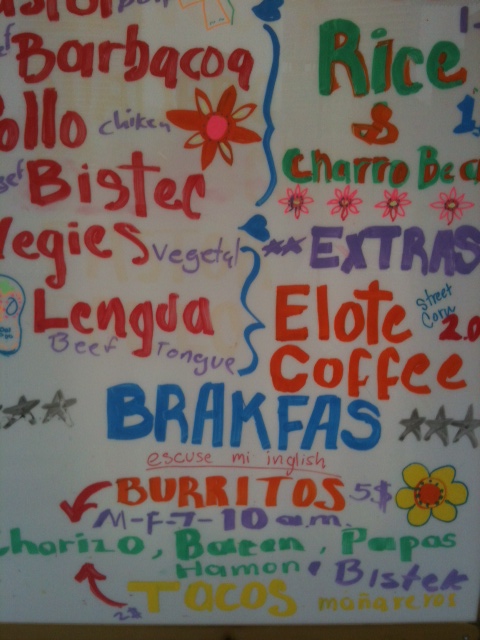 Barbacoa
ollo chiken
Bistec
Vegies vegetal
Lengua
Beef Tongue
Rice
&
Charro Bea
** EXTRAS
Elote Street Corn 2.0
Coffee
BRAKFAS
escuse mi inglish
BURRITOS 5$
M-F-7-10 a.m.
Chorizo, Bacen, Papas
Hamon, Bistek
TACOS mañareros